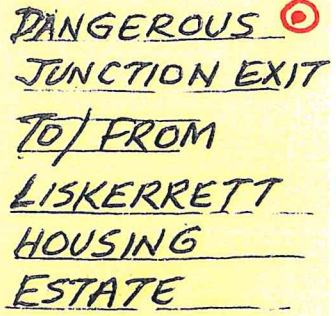 DANGEROUS
JUNCTION EXIT
TO/FROM
LISKERRETT
HOUSING
ESTATE